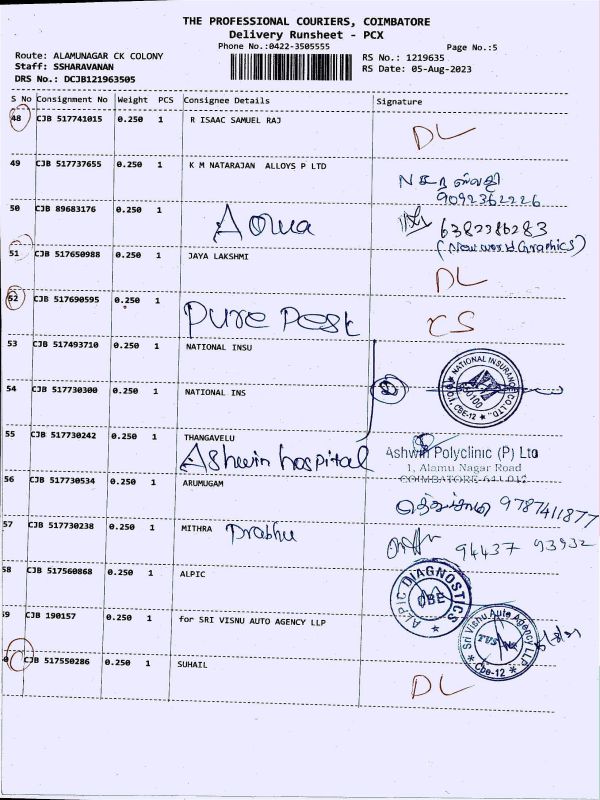 THE PROFESSIONAL COURIERS, COIMBATORE
Delivery Runsheet - PCX
Phone No.:0422-3505555
Page No.:5
Route: ALAMUNAGAR CK COLONY
Staff: SSHARAVANAN
DRS No.: DCJB121963505
RS No.: 1219635
RS Date: 05-Aug-2023
S No Consignment No Weight PCS Consignee Details Signature
48 CJB 517741015 0.250 1 R ISAAC SAMUEL RAJ DL
49 CJB 517737655 0.250 1 K M NATARAJAN ALLOYS P LTD
9092362226
50 CJB 89683176 0.250 1 Aqua 6382286283
(New world Graphics)
51 CJB 517650988 0.250 1 JAYA LAKSHMI DL
52 CJB 517690595 0.250 1 Pure Pest CS
53 CJB 517493710 0.250 1 NATIONAL INSU
NATIONAL INSURANCE CO. LTD.
CBE-12
54 CJB 517730300 0.250 1 NATIONAL INS
55 CJB 517730242 0.250 1 THANGAVELU
Ashwin hospital
Ashwin Polyclinic (P) Ltd
1, Alamu Nagar Road
COIMBATORE-641 012
56 CJB 517730534 0.250 1 ARUMUGAM 9787411877
57 CJB 517730238 0.250 1 MITHRA Prabhu 94437 93932
58 CJB 517560868 0.250 1 ALPIC
ALPIC DIAGNOSTICS
CBE
59 CJB 190157 0.250 1 for SRI VISNU AUTO AGENCY LLP
Sri Vishnu Auto Agency LLP
TVS
Cbe-12
CJB 517550286 0.250 1 SUHAIL DL